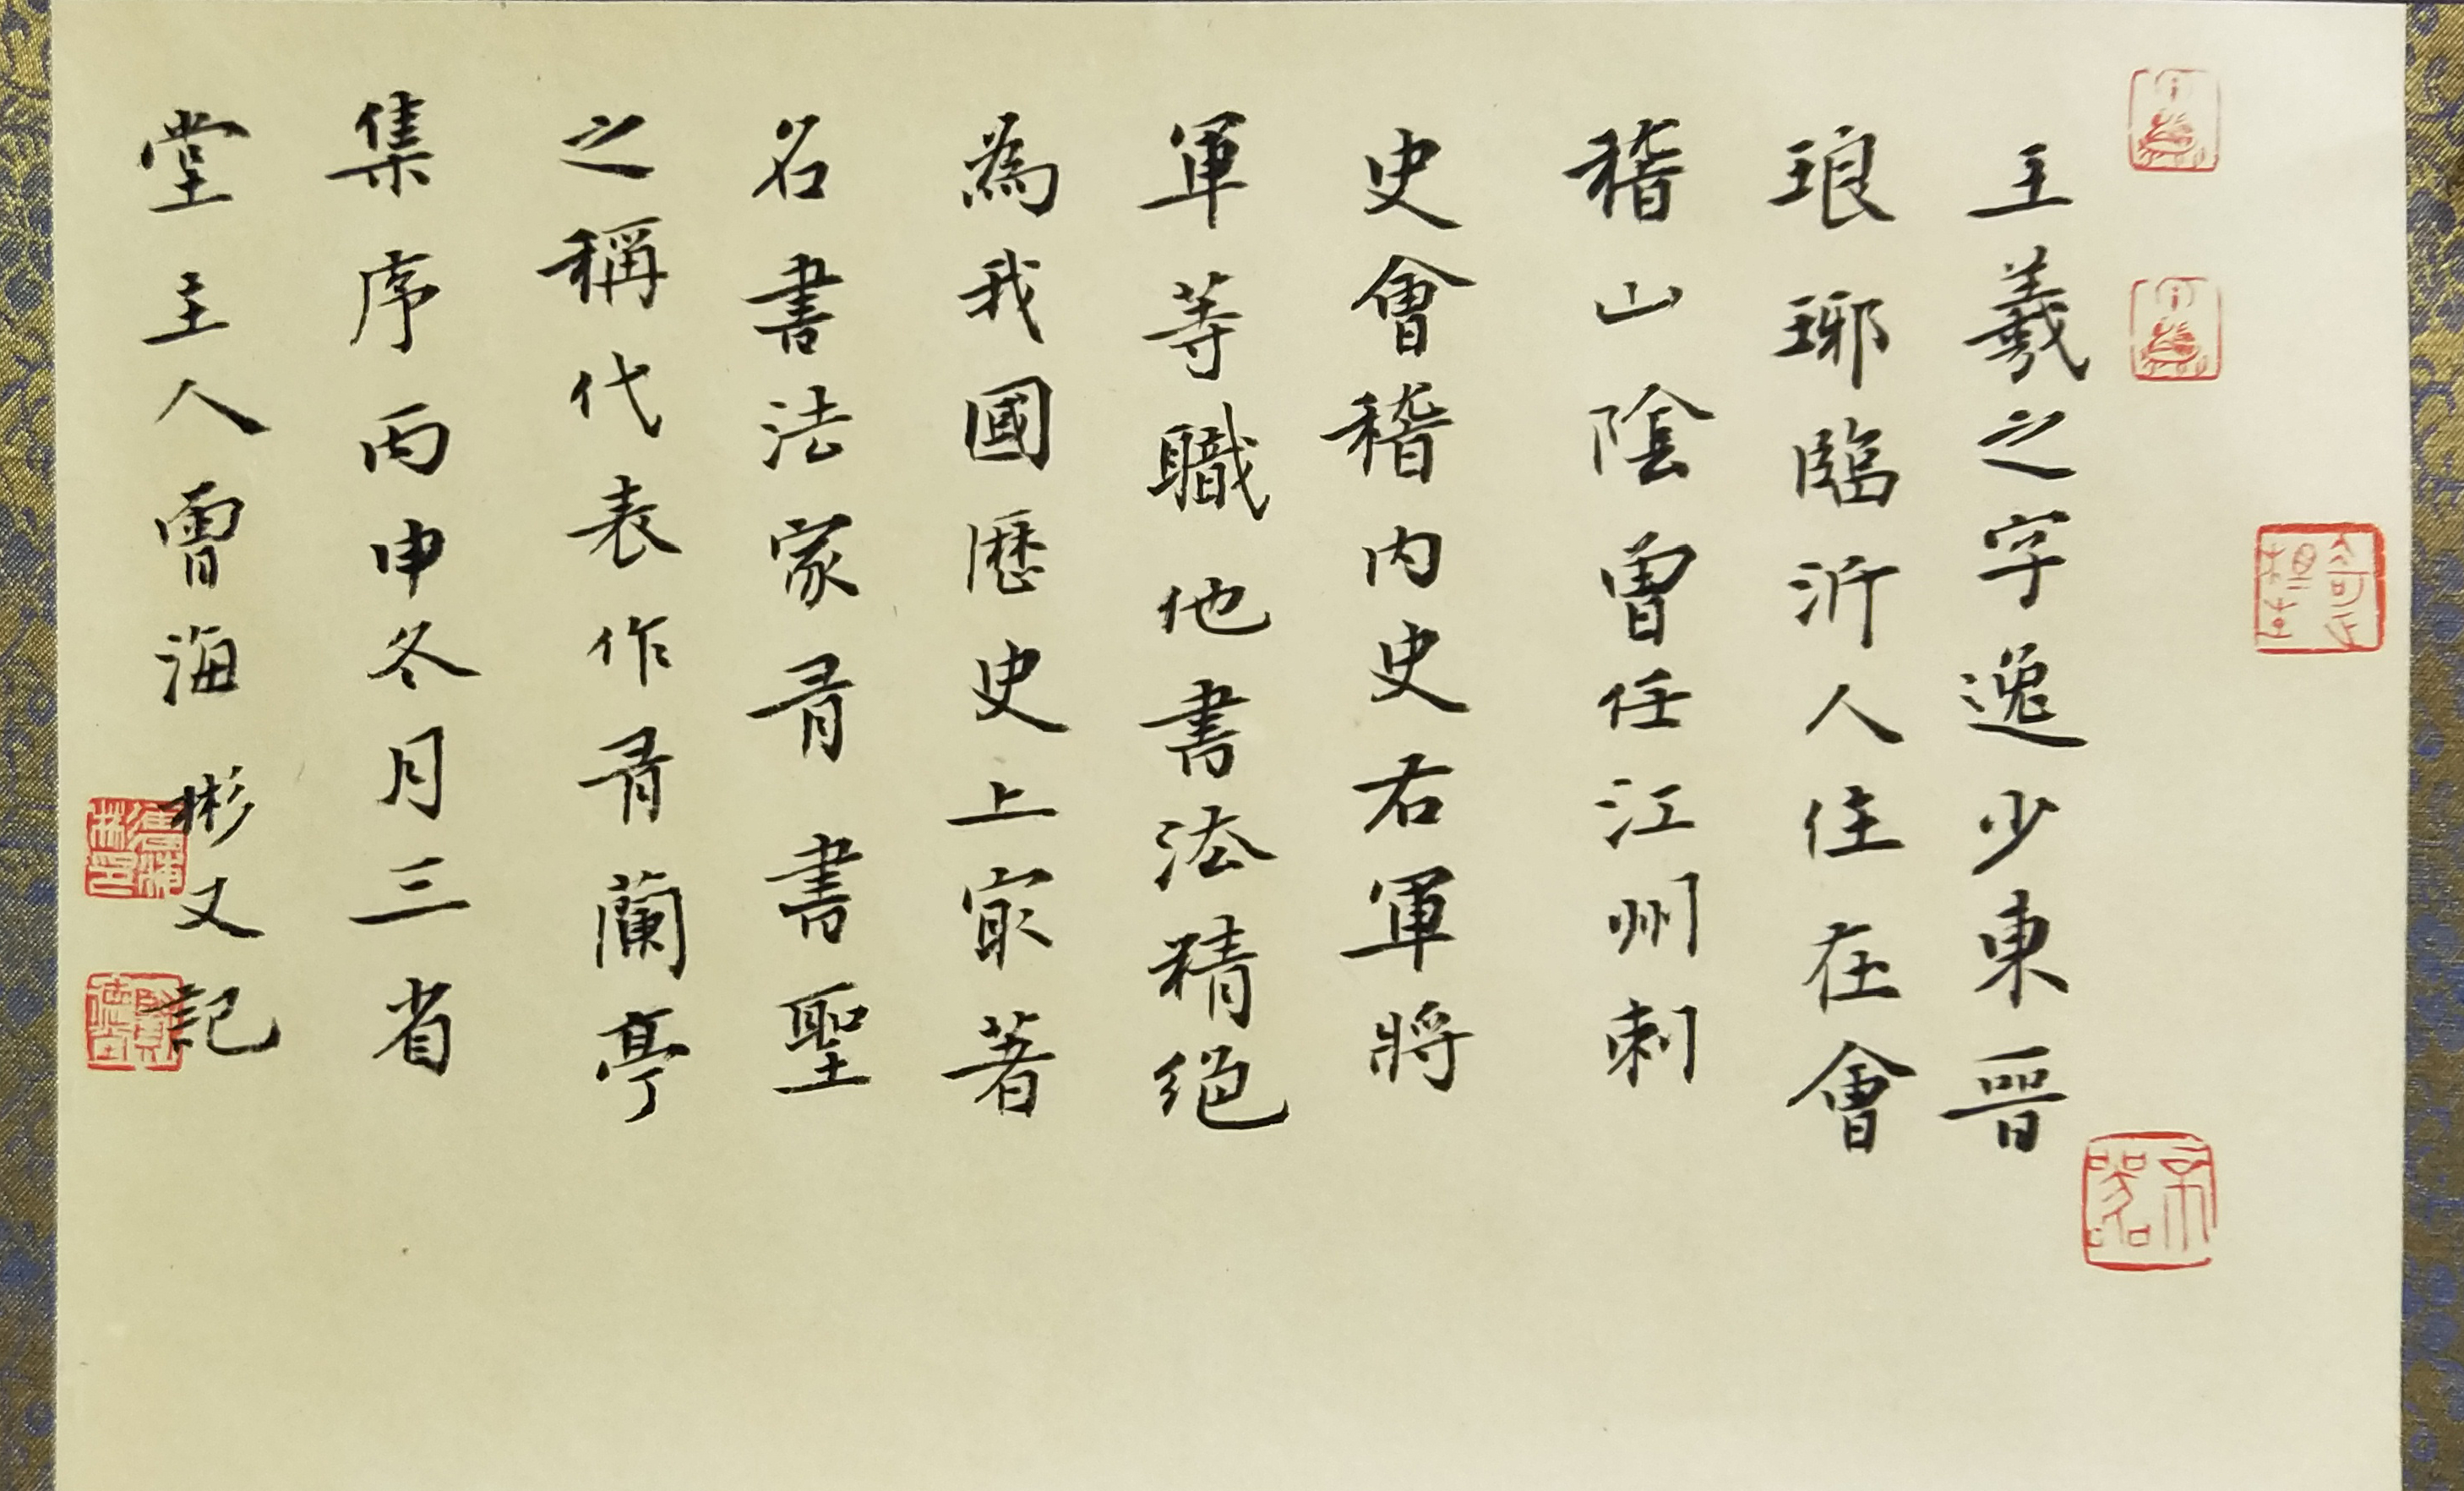 王羲之字逸少東晉
琅琊臨沂人住在會
稽山陰曾任江州刺
史會稽内史右軍將
軍等職他書法精絕
為我國歷史上最著
名書法家有書聖
之稱代表作有蘭亭
集序丙申冬月三省
堂主人曾海彬又記